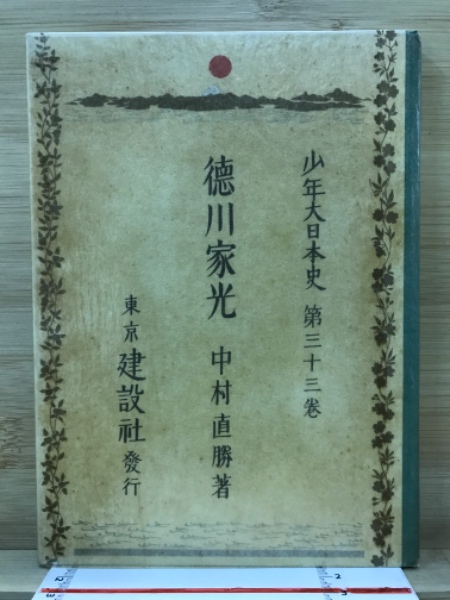 少年大日本史 第三十三卷
德川家光 中村直勝著
東京 建設社 發行